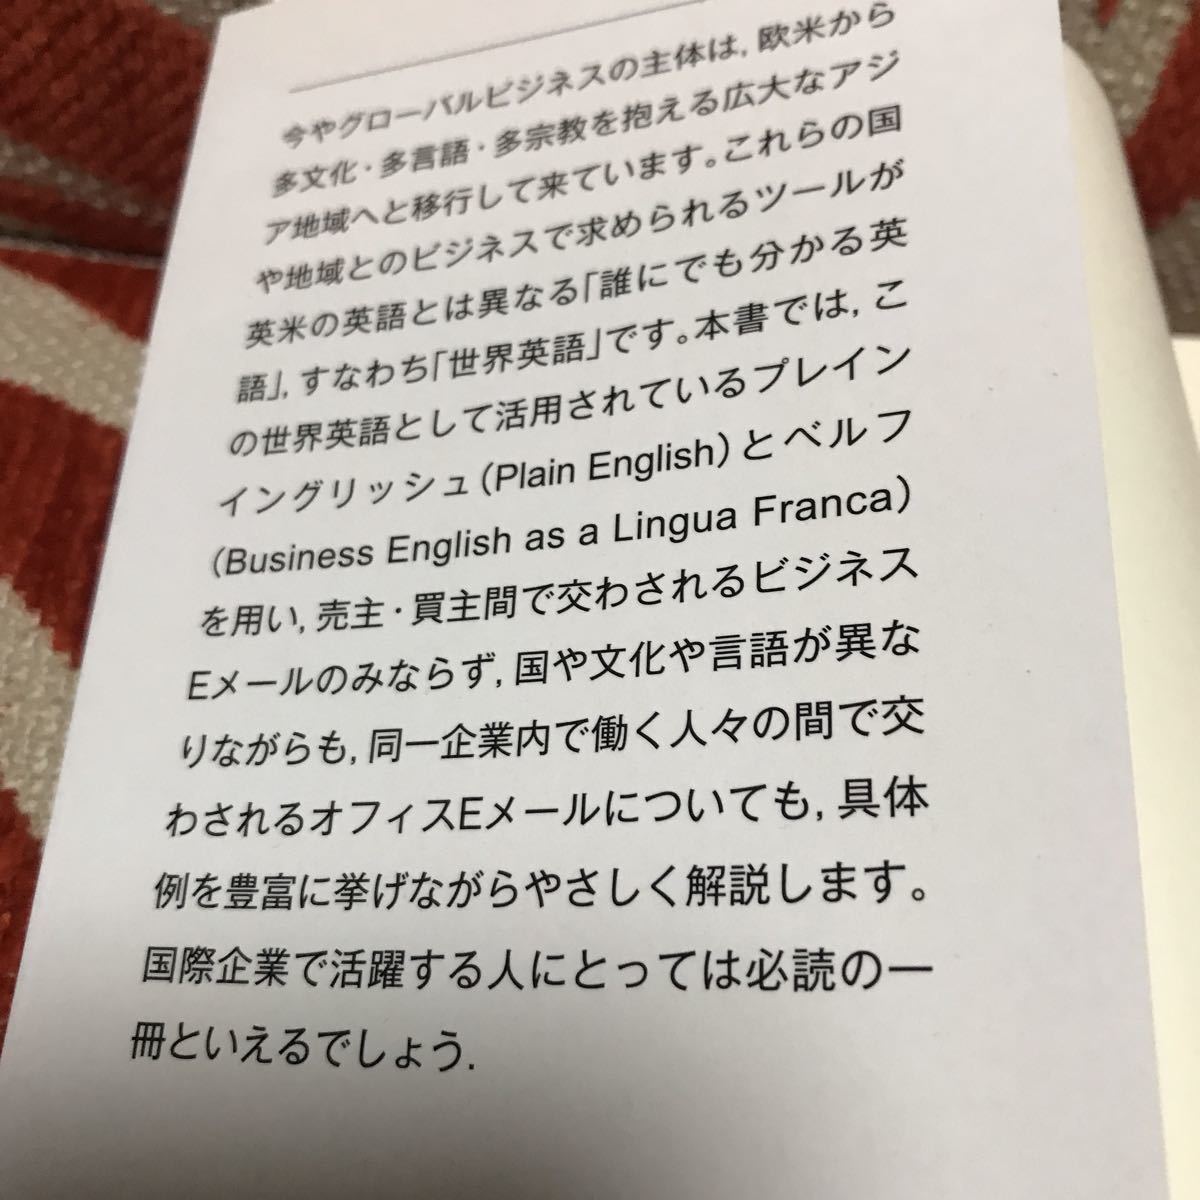 今やグローバルビジネスの主体は, 欧米から
多文化・多言語・多宗教を抱える広大なアジ
ア地域へと移行して来ています。これらの国
や地域とのビジネスで求められるツールが
英米の英語とは異なる「誰にでも分かる英
語」, すなわち「世界英語」です。本書では, こ
の世界英語として活用されているプレイン
イングリッシュ(Plain English)とベルフ
(Business English as a Lingua Franca)
を用い, 売主・買主間で交わされるビジネス
Eメールのみならず, 国や文化や言語が異な
りながらも, 同一企業内で働く人々の間で交
わされるオフィスEメールについても, 具体
例を豊富に挙げながらやさしく解説します。
国際企業で活躍する人にとっては必読の一
冊といえるでしょう.